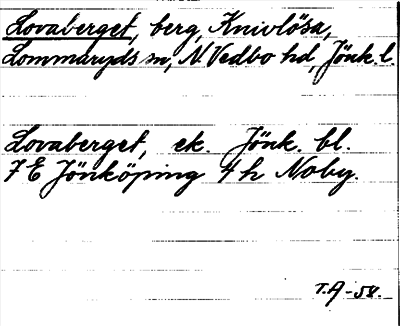 Lovaberget, berg, Knivlösa,
Lommaryds sn, N Vedbo hd, Jönk. l.
Lovaberget, ek. Jönk. bl.
7 E Jönköping 4 h Noby.
T.A -58.